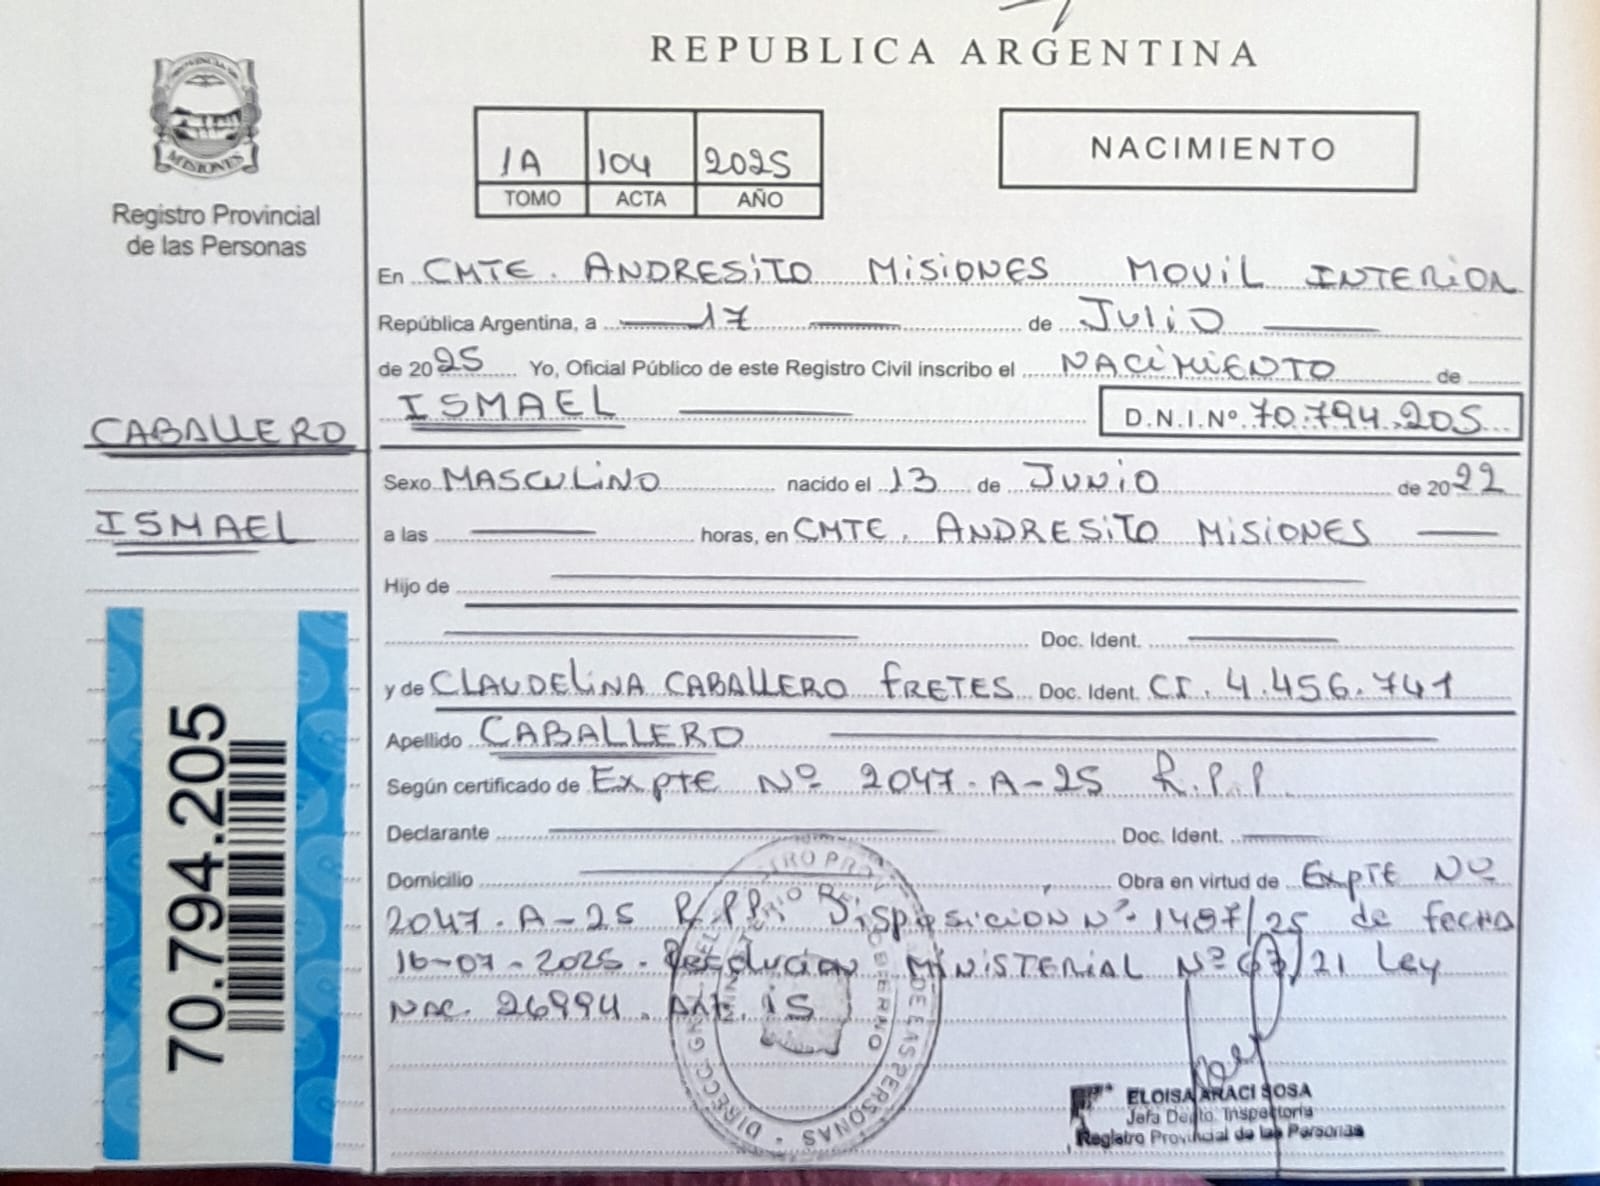 REPUBLICA ARGENTINA
PROVINCIA DE
MISIONES
Registro Provincial
de las Personas
1A 104 2025
TOMO ACTA AÑO
NACIMIENTO
En CMTE. ANDRESITO MISIONES MOVIL INTERIOR
República Argentina, a 17 de JULIO
de 2025 Yo, Oficial Público de este Registro Civil inscribo el NACIMIENTO de
ISMAEL D.N.I.Nº 70.794.205
CABALLERO
ISMAEL
70.794.205
Sexo MASCULINO nacido el 13 de JUNIO de 2022
a las horas, en CMTE. ANDRESITO MISIONES
Hijo de
Doc. Ident.
y de CLAUDELINA CABALLERO FRETES Doc. Ident. CI. 4.456.741
Apellido CABALLERO
Según certificado de EXPTE Nº 2047-A-25 R.P.P.
Declarante Doc. Ident.
Domicilio Obra en virtud de EXPTE Nº
2047-A-25 R.P.P. Disposición Nº 1487/25 de fecha
16-07-2025. Resolución MINISTERIAL Nº /21 Ley
NAC. 26994. Art. 15
DE LAS PERSONAS
ELOISA ARACI SOSA
Jefa Depto. Inspectoría
Registro Provincial de las Personas